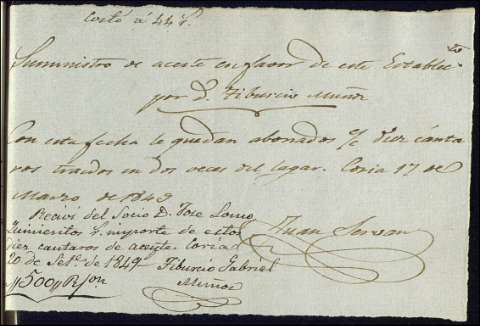 Costó á 44 r.
Suministro de aceite en favor de este Establec.to
por D. Tiburcio Muñoz
Con esta fecha le quedan abonados diez cánta
ros traidos en dos veces del lagar. Coria 17 de
Marzo de 1849
Recivi del Socio D. Jose
Quinientos r. ymporte de estos
diez cantaros de aceyte. Coria
20 de Set.e de 1849
Tiburcio Gabriel
Munoz
Juan
,,500,, R.on